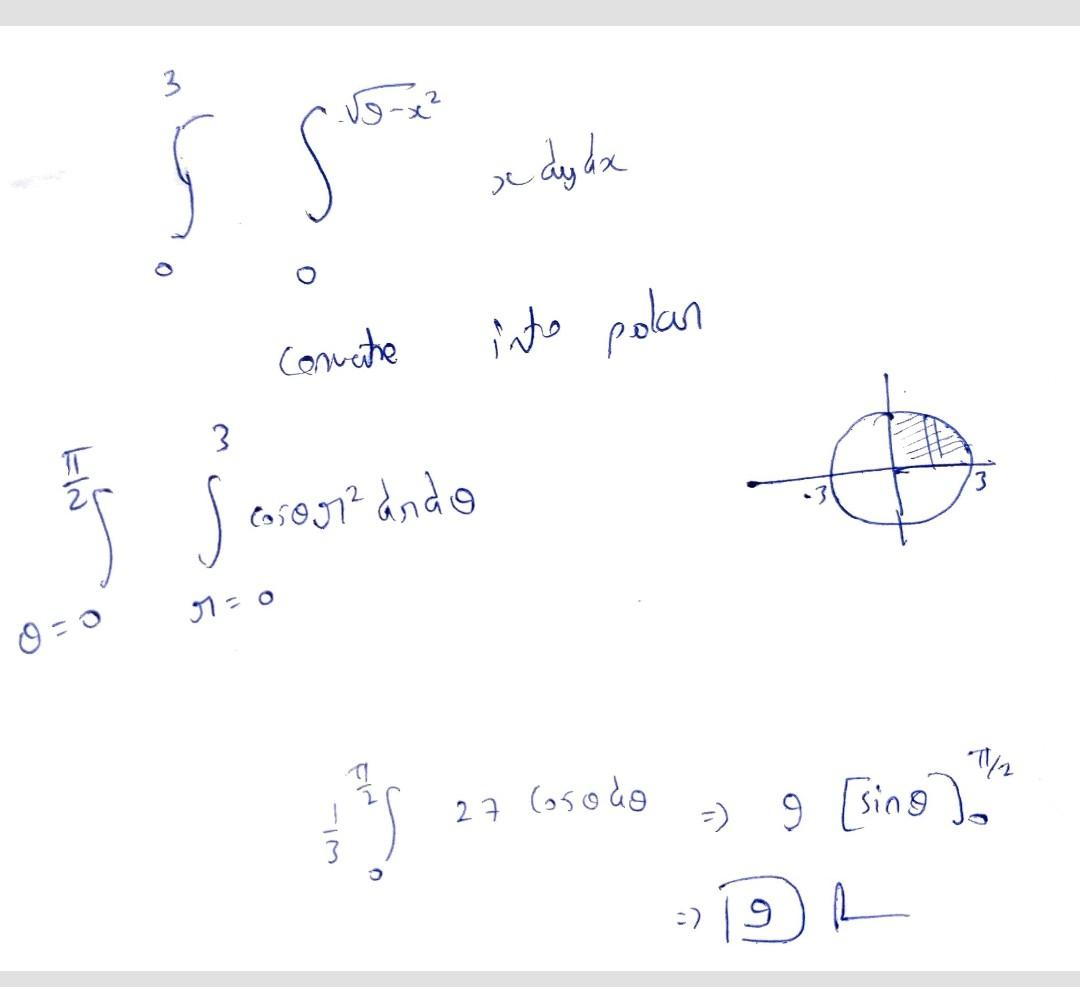 ∫₀³ ∫₀^√(9-x²) x dy dx
into polar
∫_{θ=0}^{π/2} ∫_{r=0}^{3} cosθ r² dr dθ
-3 3
1/3 ∫₀^{π/2} 27 cosθ dθ => 9 [sinθ]₀^{π/2}
=> 9